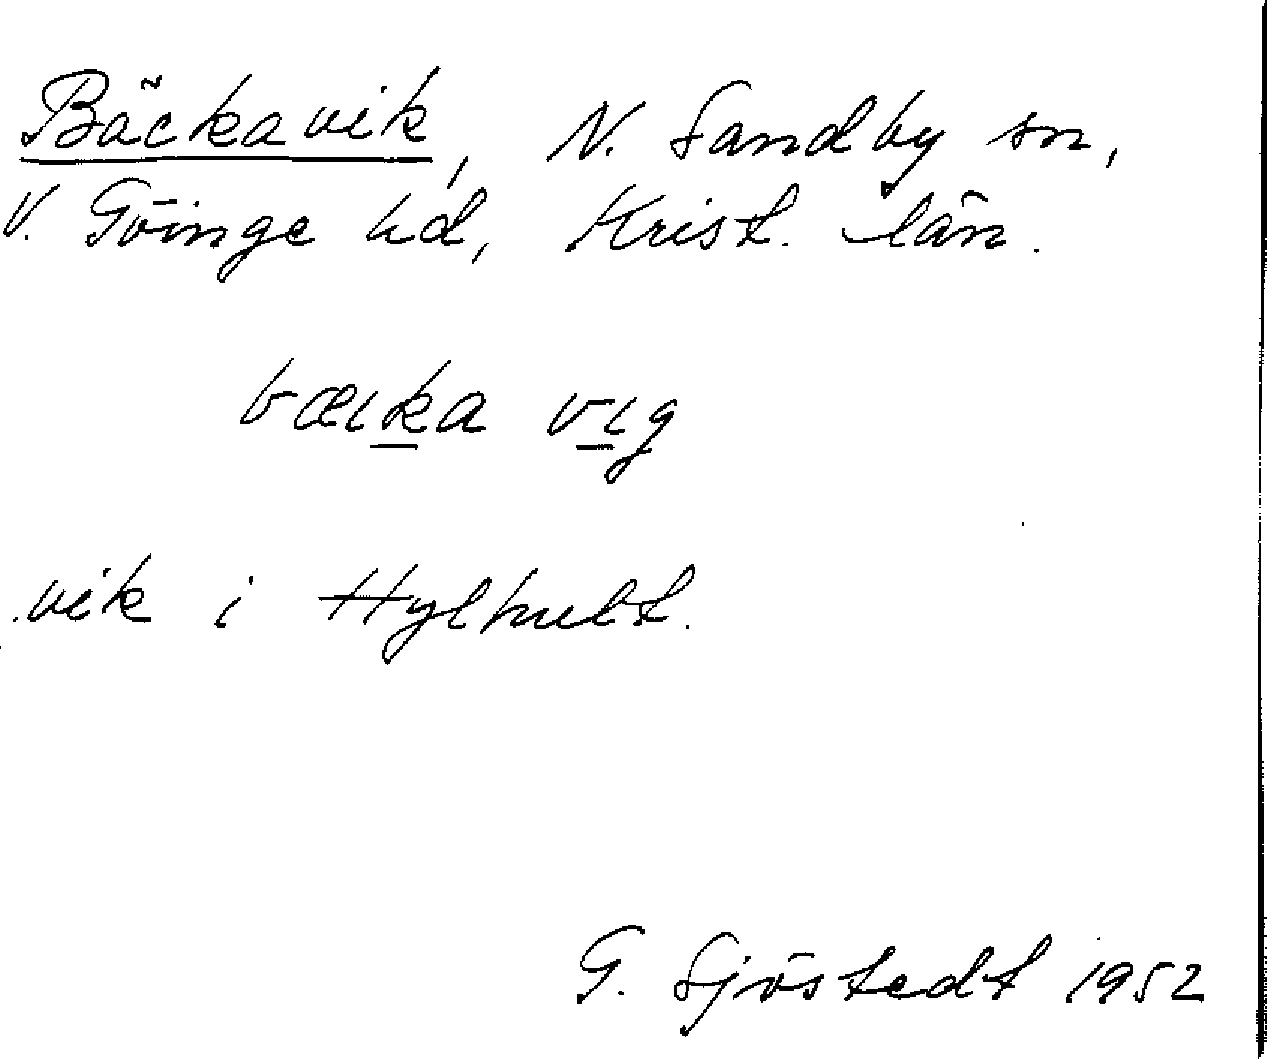 Bäckavik, N. Sandby sn,
V. Göinge hd, Krist. län.
bæıka vıg
vik i Hylhult.
G. Sjöstedt 1952